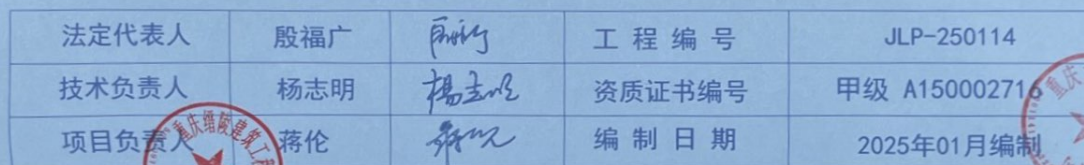 法定代表人 殷福广 工程编号 JLP-250114
技术负责人 杨志明 杨志明 资质证书编号 甲级 A150002716
项目负责人 蒋伦 编制日期 2025年01月编制
重庆缙陵建筑工程
重庆